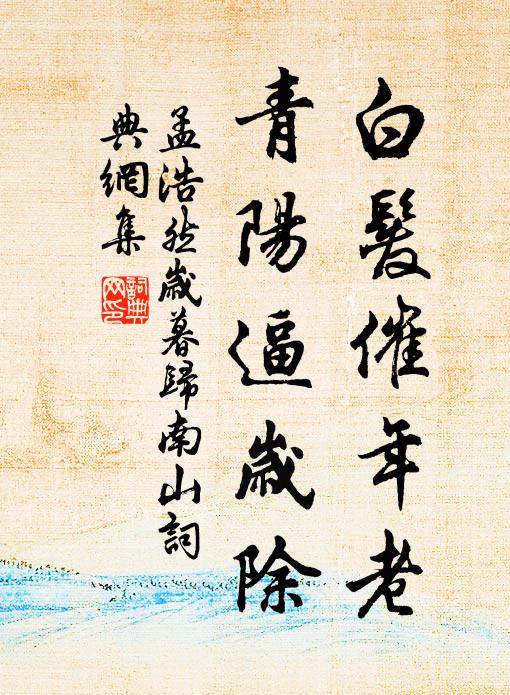 白髮催年老
青陽逼歲除
孟浩然歲暮歸南山詞
典網集
詞典
网印